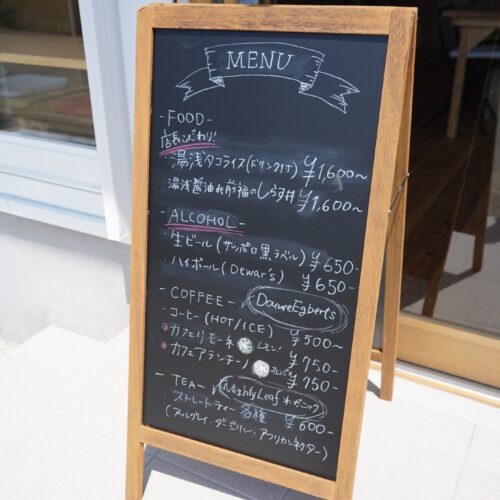 MENU
- FOOD -
店長こだわり!
・湯浅タコライス(ドリンク付) ¥1,600〜
・湯浅醤油と前福のしらす丼 ¥1,600〜
- ALCOHOL -
・生ビール (サッポロ黒ラベル) ¥650-
・ハイボール (Dewar's) ¥650-
- COFFEE - DouweEgberts
・コーヒー (HOT/ICE) ¥500〜
カフェリモーネ レモン! ¥750-
カフェアランチーノ オレンジ ¥750-
- TEA - MightyLeaf オーガニック
・ストレートティー 各種 ¥600〜
(アールグレイ・ダージリン・アフリカンネクター)